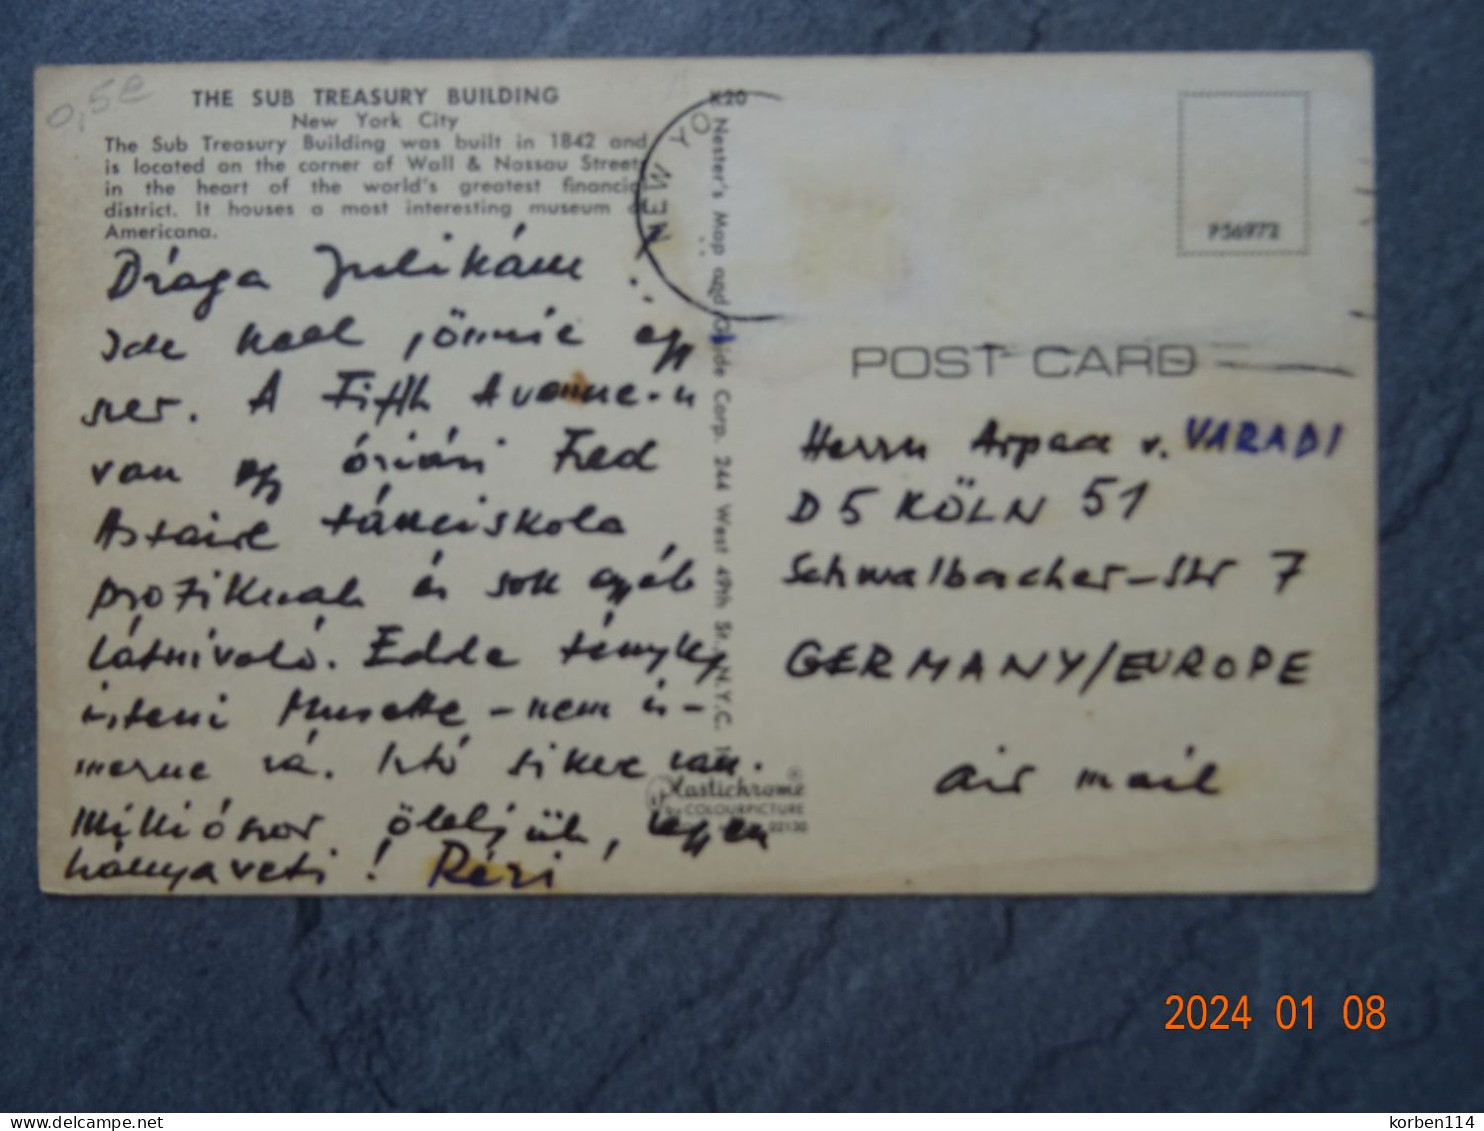 0,5e
THE SUB TREASURY BUILDING
New York City
The Sub Treasury Building was built in 1842 and
is located on the corner of Wall & Nassau Streets
in the heart of the world's greatest financial
district. It houses a most interesting museum of
Americana.
Drága Julikám
Ide kell jönnie egy
szer. A Fifth Avenue-n
van egy óriási Fred
Astaire tánciskola
profiknak és sok egyéb
látnivaló. Edda tényleg
isteni Musette - nem is-
merne rá. Irtó sikere van.
Milliószor öleljük,
hányaveti! Rézi
K20
Nester's Map and Guide Corp. 244 West 49th St., N.Y.C.
NEW YO
Plastichrome ®
by COLOURPICTURE
02130
P56972
POST CARD
Herrn Arpad v. VARADI
D 5 KÖLN 51
Schwalbacher-Str 7
GERMANY/EUROPE
air mail
2024 01 08
delcampe.net
korben114